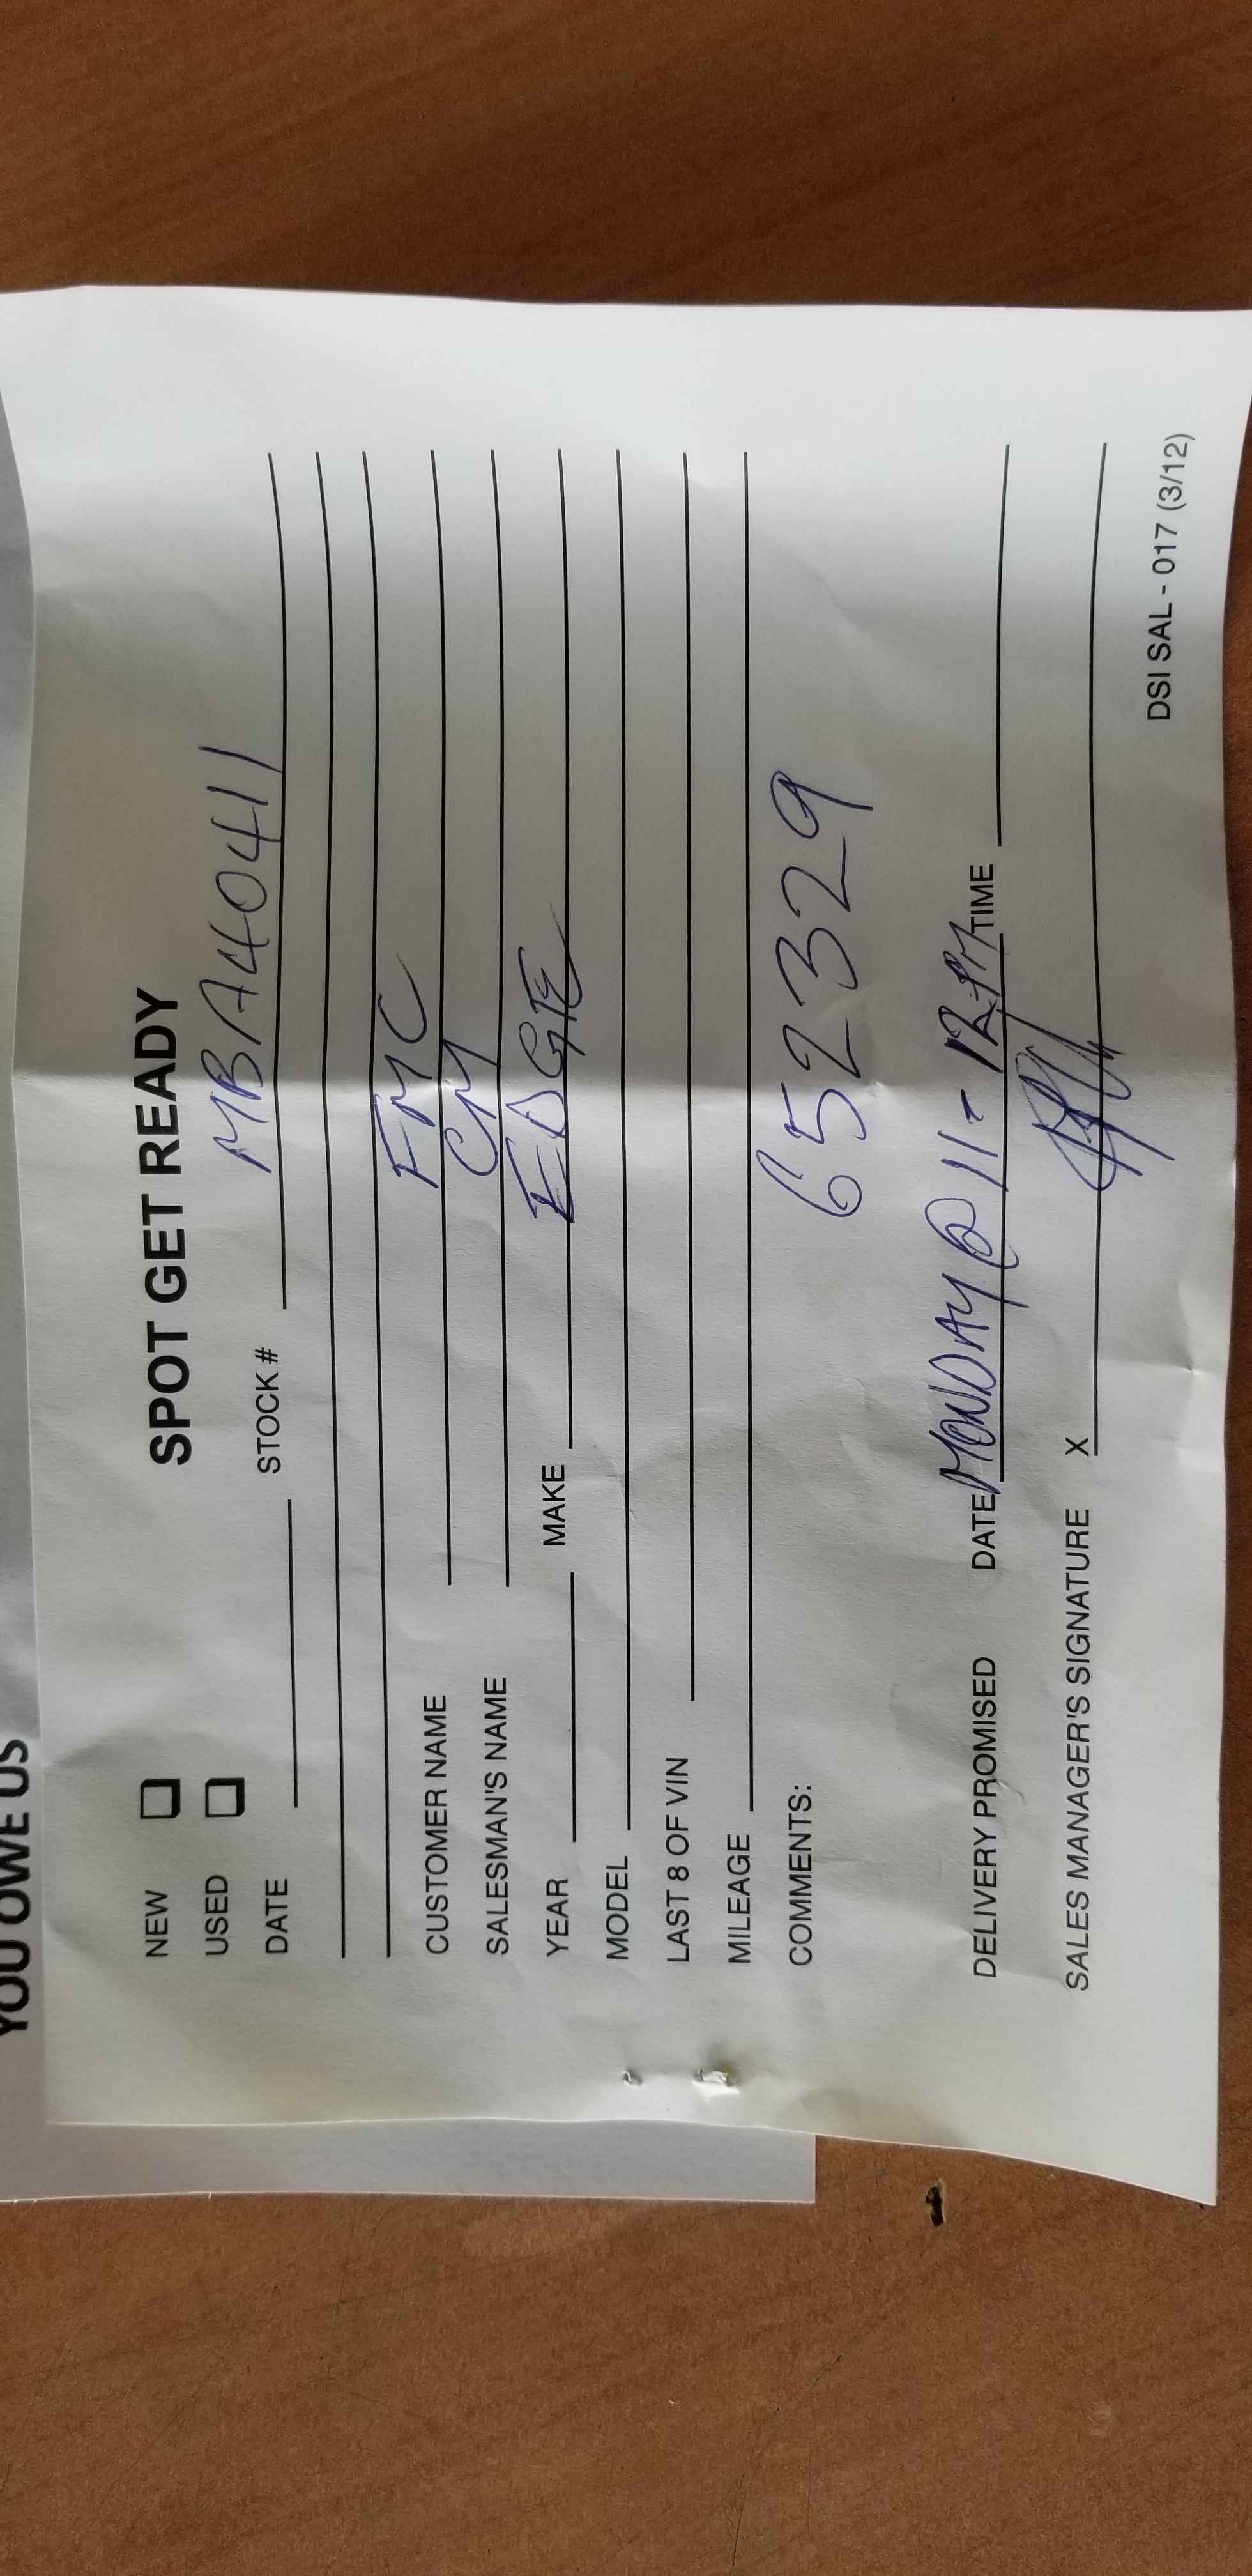 YOU OWE US
SPOT GET READY
NEW
USED
DATE STOCK # MBA40411
CUSTOMER NAME FMC
SALESMAN'S NAME CM
YEAR MAKE EDGE
MODEL
LAST 8 OF VIN
MILEAGE
COMMENTS: 652329
DELIVERY PROMISED DATE MONDAY @ 11 - 12PM TIME
SALES MANAGER'S SIGNATURE X
DSI SAL - 017 (3/12)